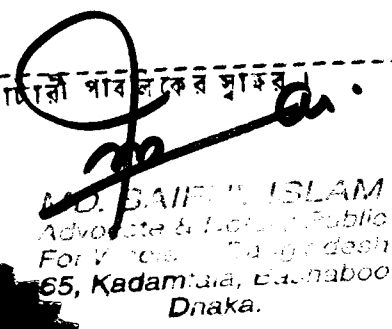 পাবলিকের স্বাক্ষর।
MD. SAIFUL ISLAM
Advocate & Notary Public
For Whole Bangladesh
65, Kadamtala, Bashaboo
Dhaka.